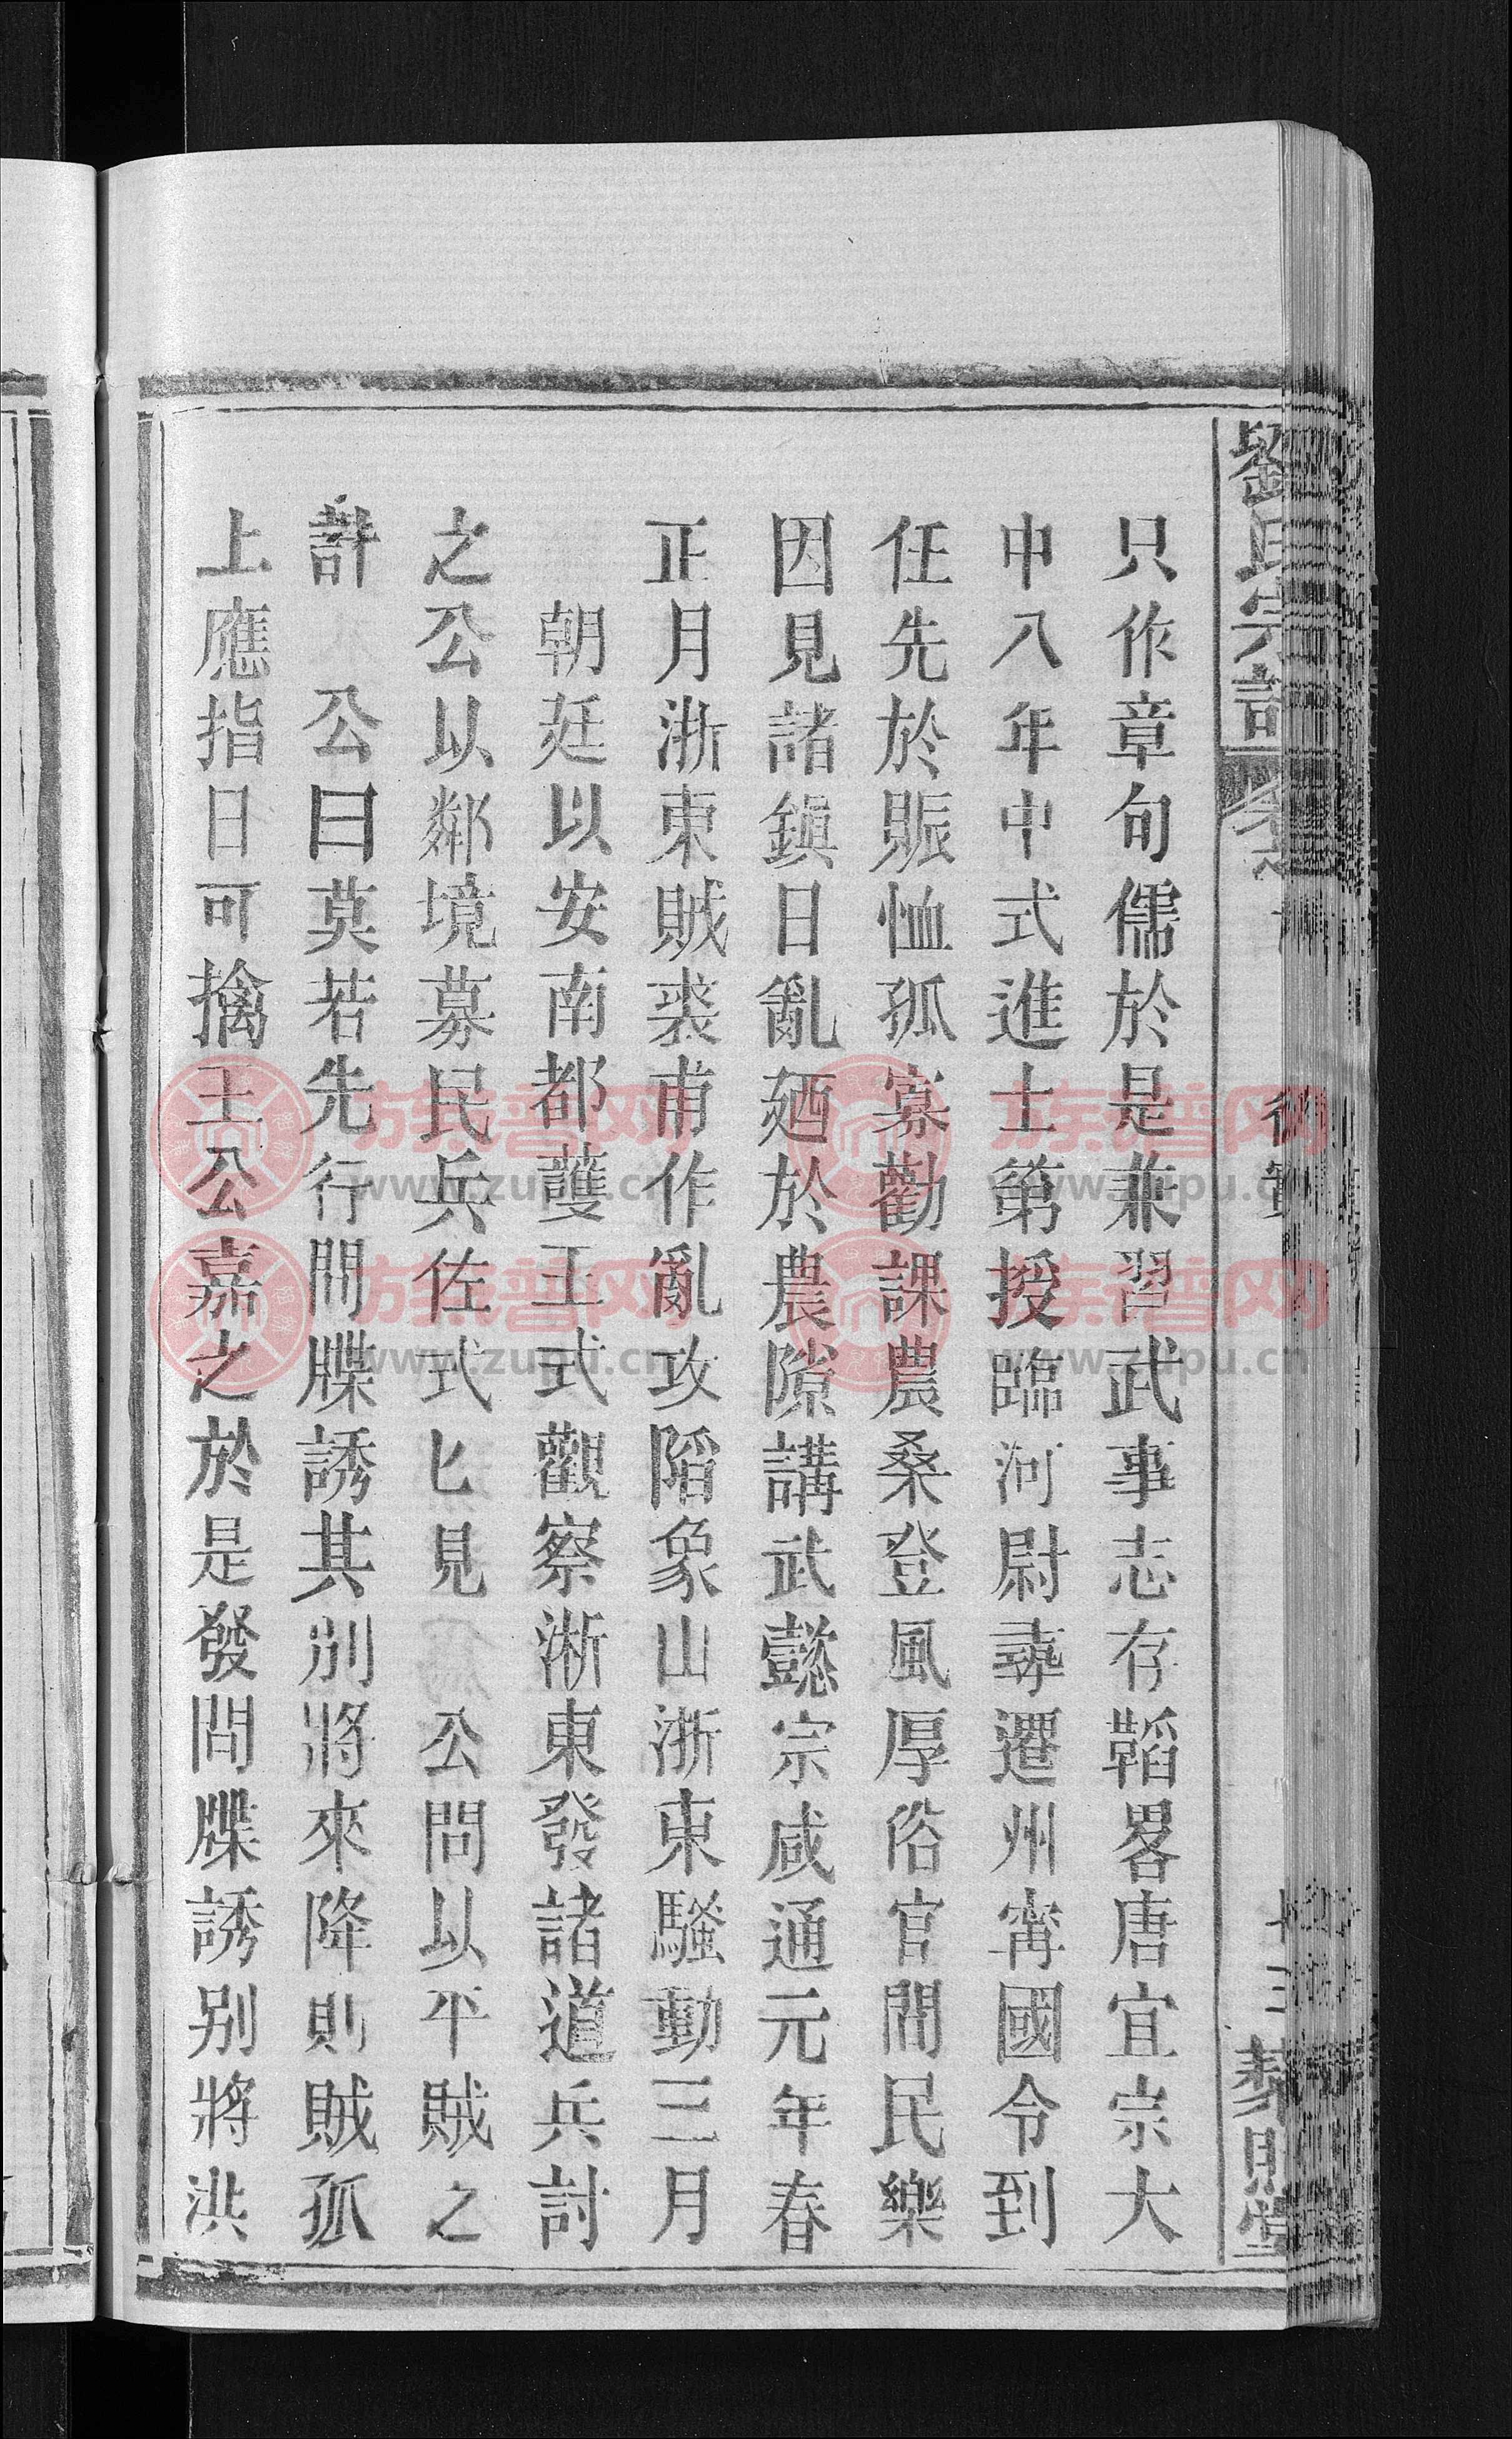 只作章句儒於是兼習武事志存韜畧唐宣宗大
中八年中式進士第授臨河尉尋遷州甯國令到
任先於賑恤孤寡勸課農桑登風厚俗官閒民樂
因見諸鎮日亂廼於農隙講武懿宗咸通元年春
正月浙東賊裘甫作亂攻陷象山浙東騷動三月
朝廷以安南都護王式觀察淅東發諸道兵討
之公以鄰境募民兵佐式匕見 公問以平賊之
計 公曰莫若先行間牒誘其別將來降則賊孤
上應指日可擒王公嘉之於是發間牒誘别將洪
劉氏宗譜
族谱网
www.zupu.cn
族谱网
www.zupu.cn
族谱网
www.zupu.cn
族谱网
www.zupu.cn